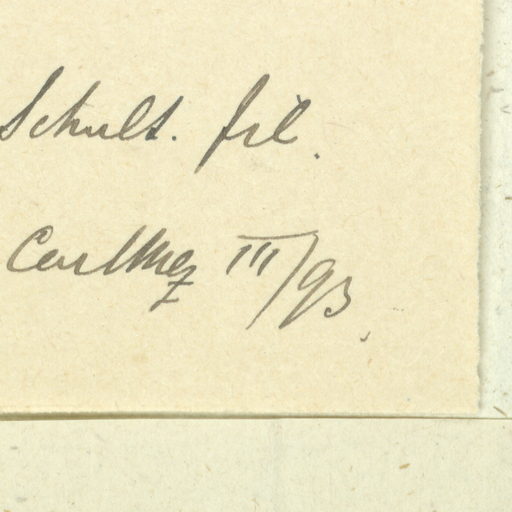 Schult. fil.
Carl Mez III/93.